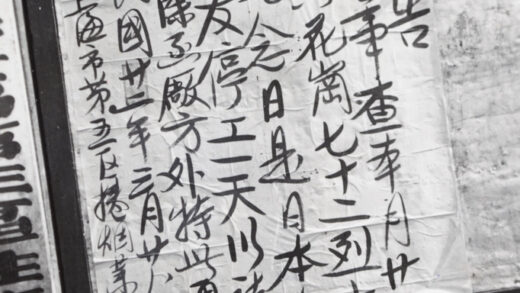 告
事查本月廿
花崗七十二烈
念日是日本
友停工一天以
除函廠方外特此
國廿二年三月廿八
上海市第五區捲烟業